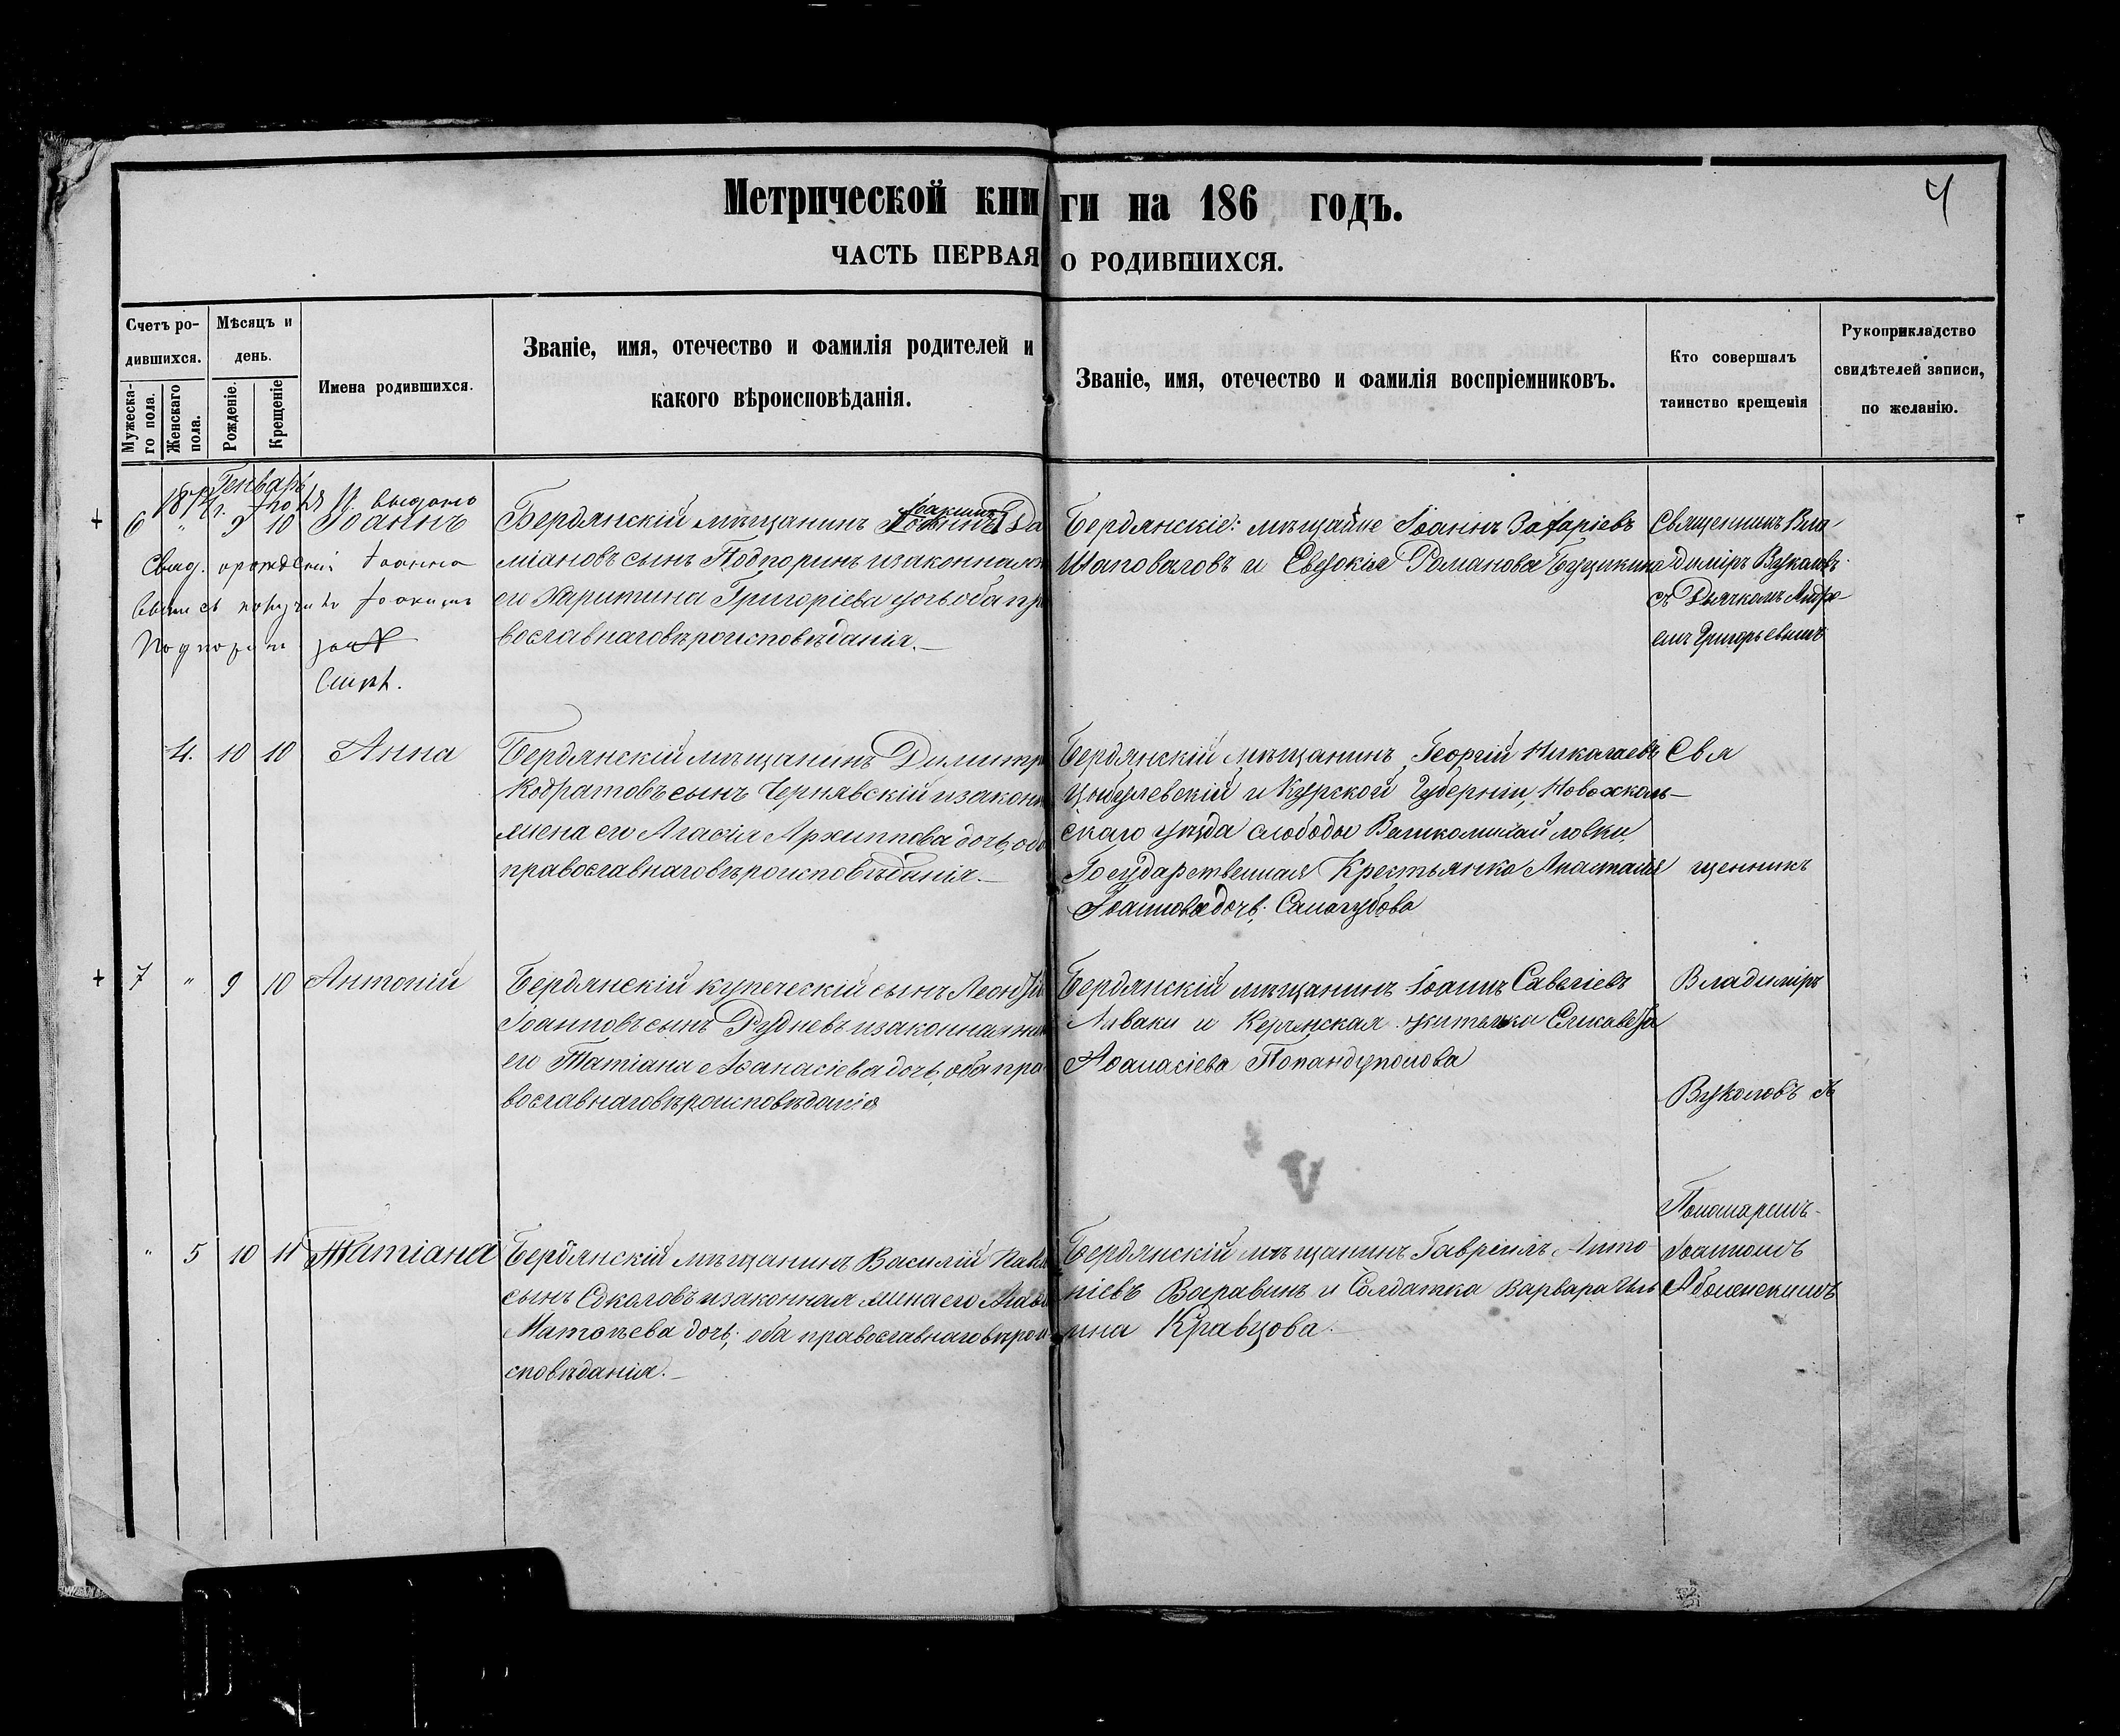 Метрической книги на 186 годъ.
4
ЧАСТЬ ПЕРВАЯ О РОДИВШИХСЯ.
Счетъ родившихся.
Мужескаго пола.
Женскаго пола.
Мѣсяцъ и день.
Рожденіе.
Крещеніе
Имена родившихся.
Званіе, имя, отечество и фамилія родителей и
какого вѣроисповѣданія.
Званіе, имя, отечество и фамилія воспріемниковъ.
Кто совершалъ
таинство крещенія
Рукоприкладство
свидѣтелей записи,
по желанію.
Генварь
6 " 9 10 Іоаннъ
Свид. о рожденіи Іоанна
получилъ Іоакимъ
Подпоринъ
Бердянскій мѣщанинъ Іоакимъ Да
міановъ сынъ Подпоринъ и законная ж
его Харитина Григоріева дочь оба пр
вославнаго вѣроисповѣданія.
Бердянскіе: мѣщане Іоаннъ Захаріевъ
Шаповаловъ и Евдокія Романова
Священникъ Вла
диміръ Вуколовъ
съ Дьячкомъ Андре
емъ Григорьевымъ
4. 10 10 Анна
Бердянскій мѣщанинъ Димитр
Кодратовъ сынъ Чернявскій и закон
жена его Агафія Архиппова дочь, об
православнаго вѣроисповѣданія.
Бердянскій мѣщанинъ Георгій Николаевъ
Цыбулевскій и Курской Губерніи, Новосколь
скаго уѣзда слободы Великомихайловки,
Государственная Крестьянка Анастасія
Іоаннова дочь Самогубова
Свя
щенникъ
7 " 9 10 Антоній
Бердянскій купеческій сынъ Леонтій
Іоанновъ сынъ Рудневъ и законная жен
его Татіана Аѳанасіева дочь, оба пра
вославнаго вѣроисповѣданія
Бердянскій мѣщанинъ Іоаннъ Савеліевъ
Лаваки и Керченская жителька Елисавета
Аѳанасіева Попандуполова
Владиміръ
Вуколовъ съ
" 5 10 11 Татіана
Бердянскій мѣщанинъ Василій Павл
сынъ Соколовъ и законная жена его
Матѳѣева дочь; оба православнаго вѣрои
сповѣданія.
Бердянскій мѣщанинъ Гавріилъ Анто
ніевъ Варавинъ и Солдатка Варвара Иль
ина Кравцова.
Пономаремъ
Іоанномъ
Аболенскимъ